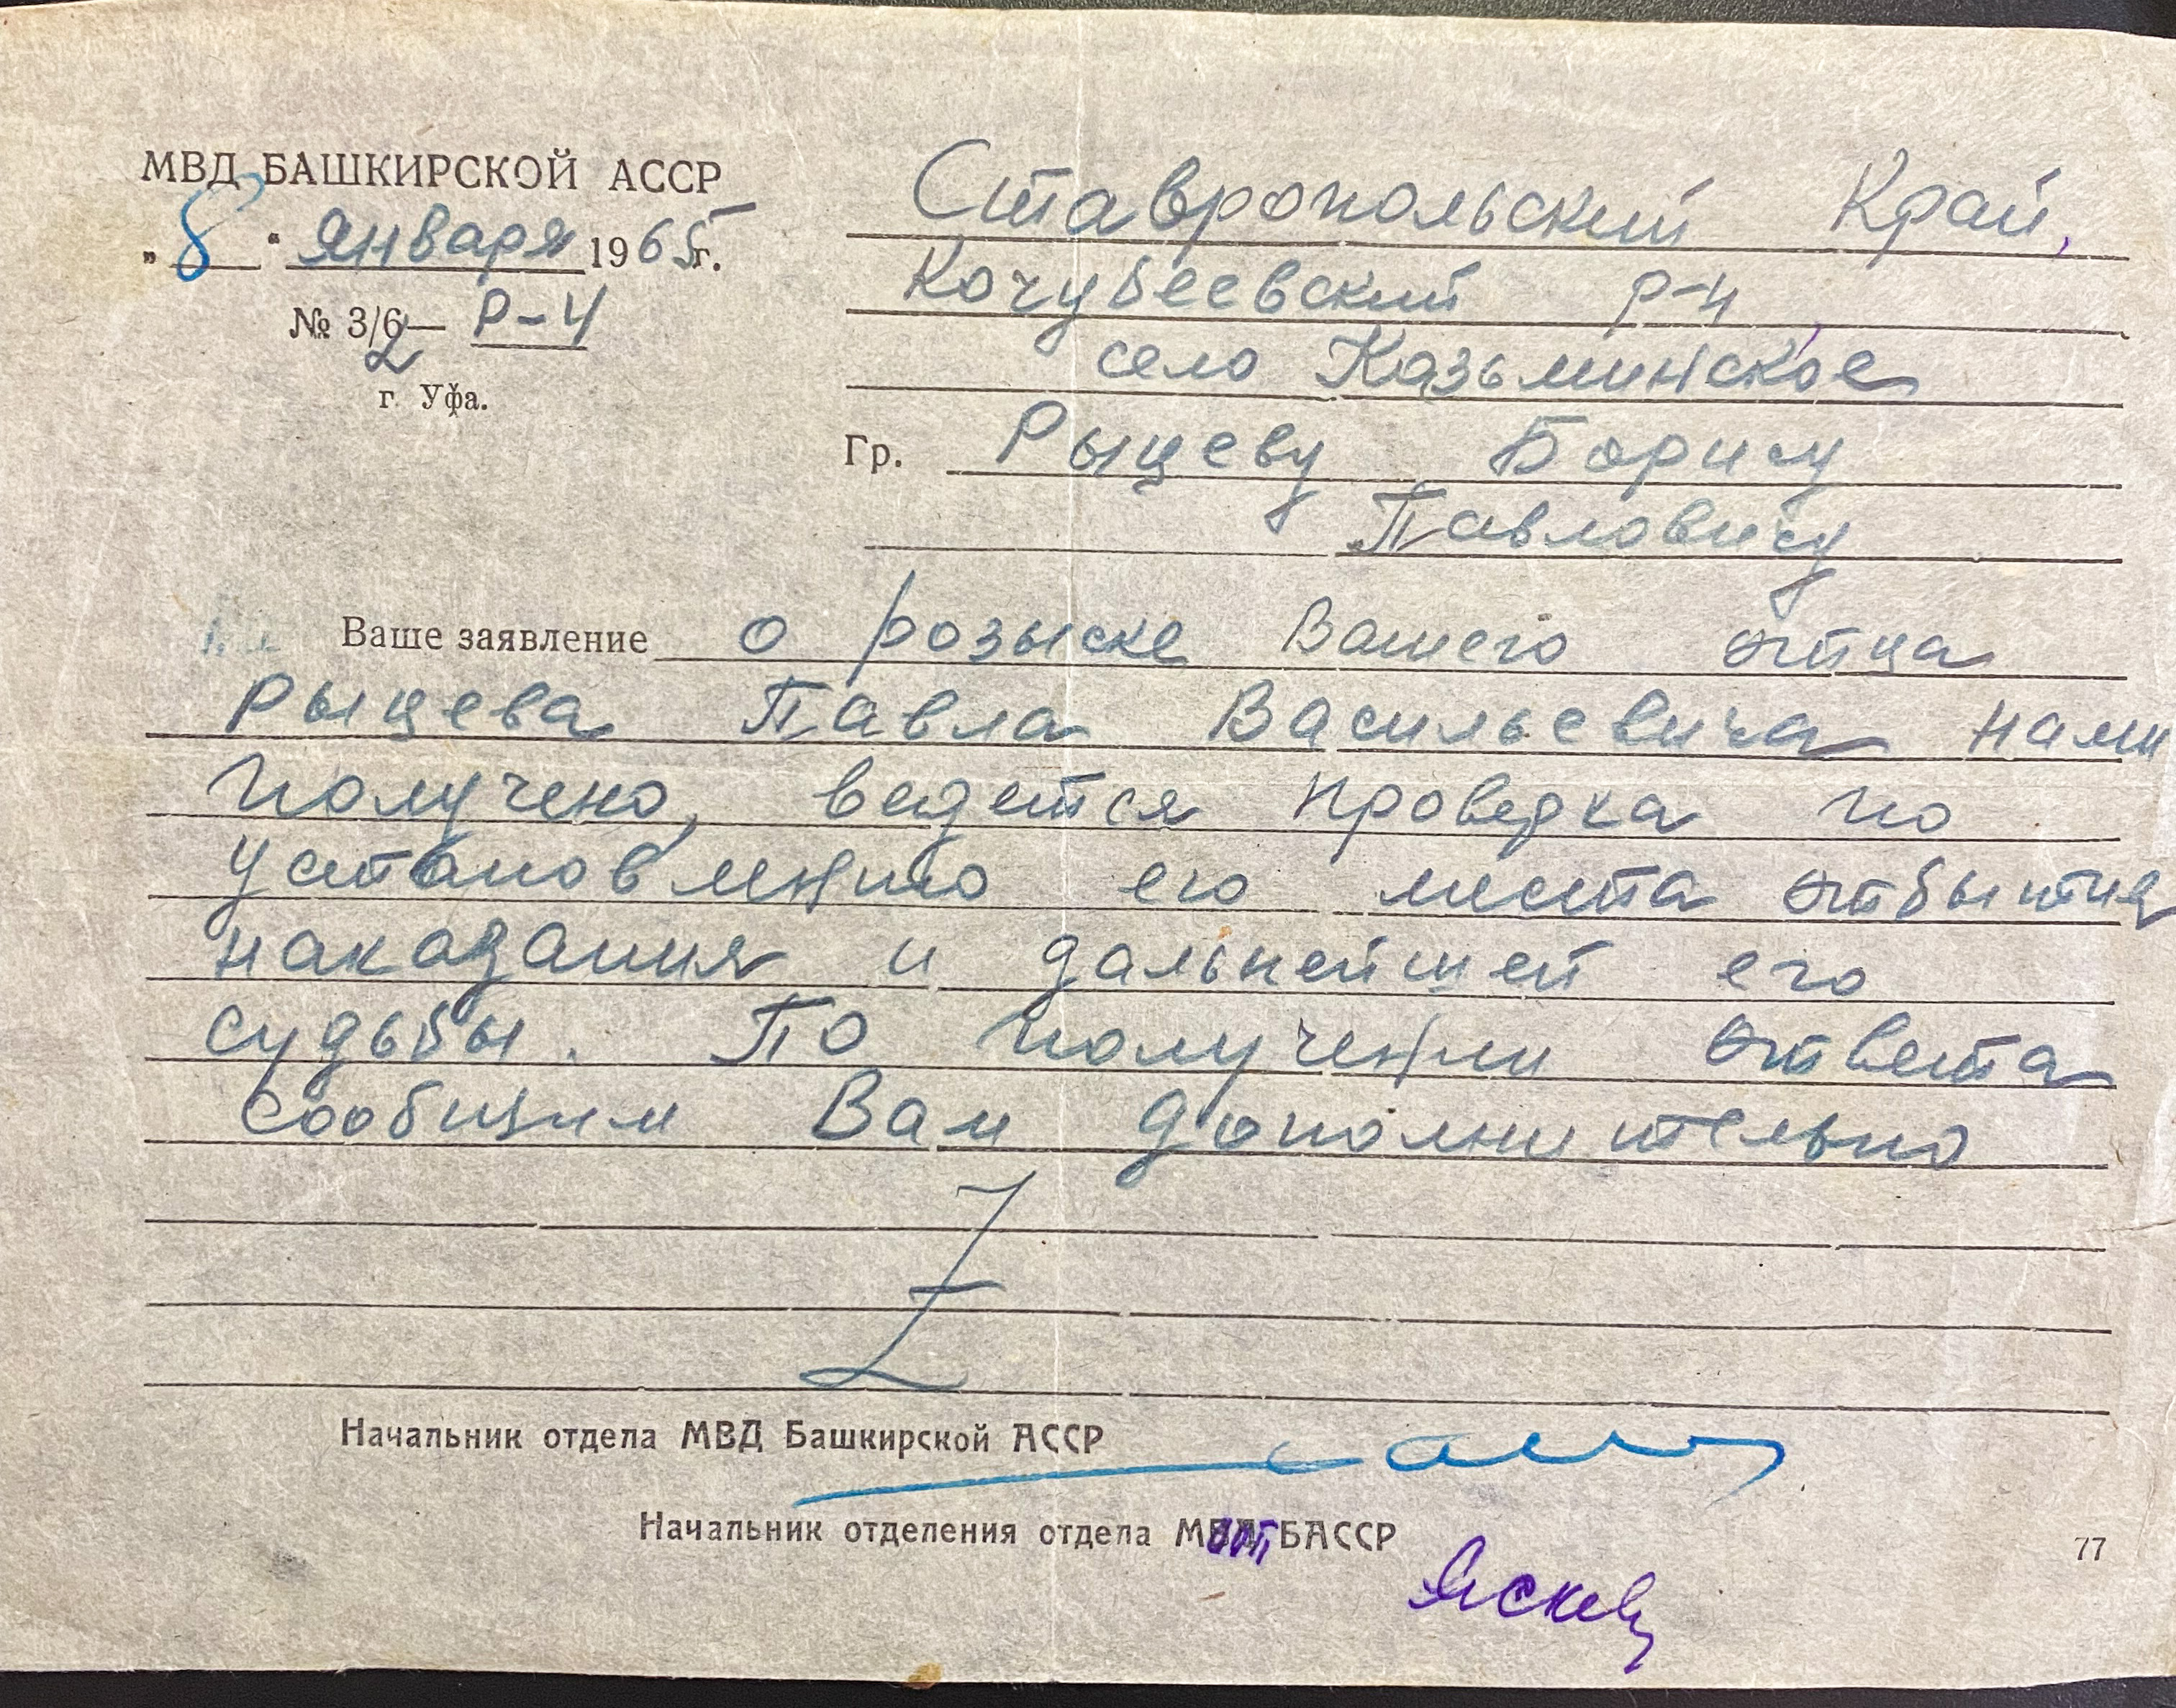 МВД БАШКИРСКОЙ АССР
„8“ января 1965 г.
№ 3/6 — Р-4
2
г. Уфа.
Ставропольский Край,
Кочубеевский р-н,
село Казьминское
Гр. Рыцеву Борису
Павловичу
Ваше заявление о розыске Вашего отца
Рыцева Павла Васильевича нами
получено, ведется проверка по
установлению его места отбытия
наказания и дальнейшей его
судьбы. По получении ответа
сообщим Вам дополнительно
Начальник отдела МВД Башкирской АССР
Начальник отделения отдела МООП БАССР
77